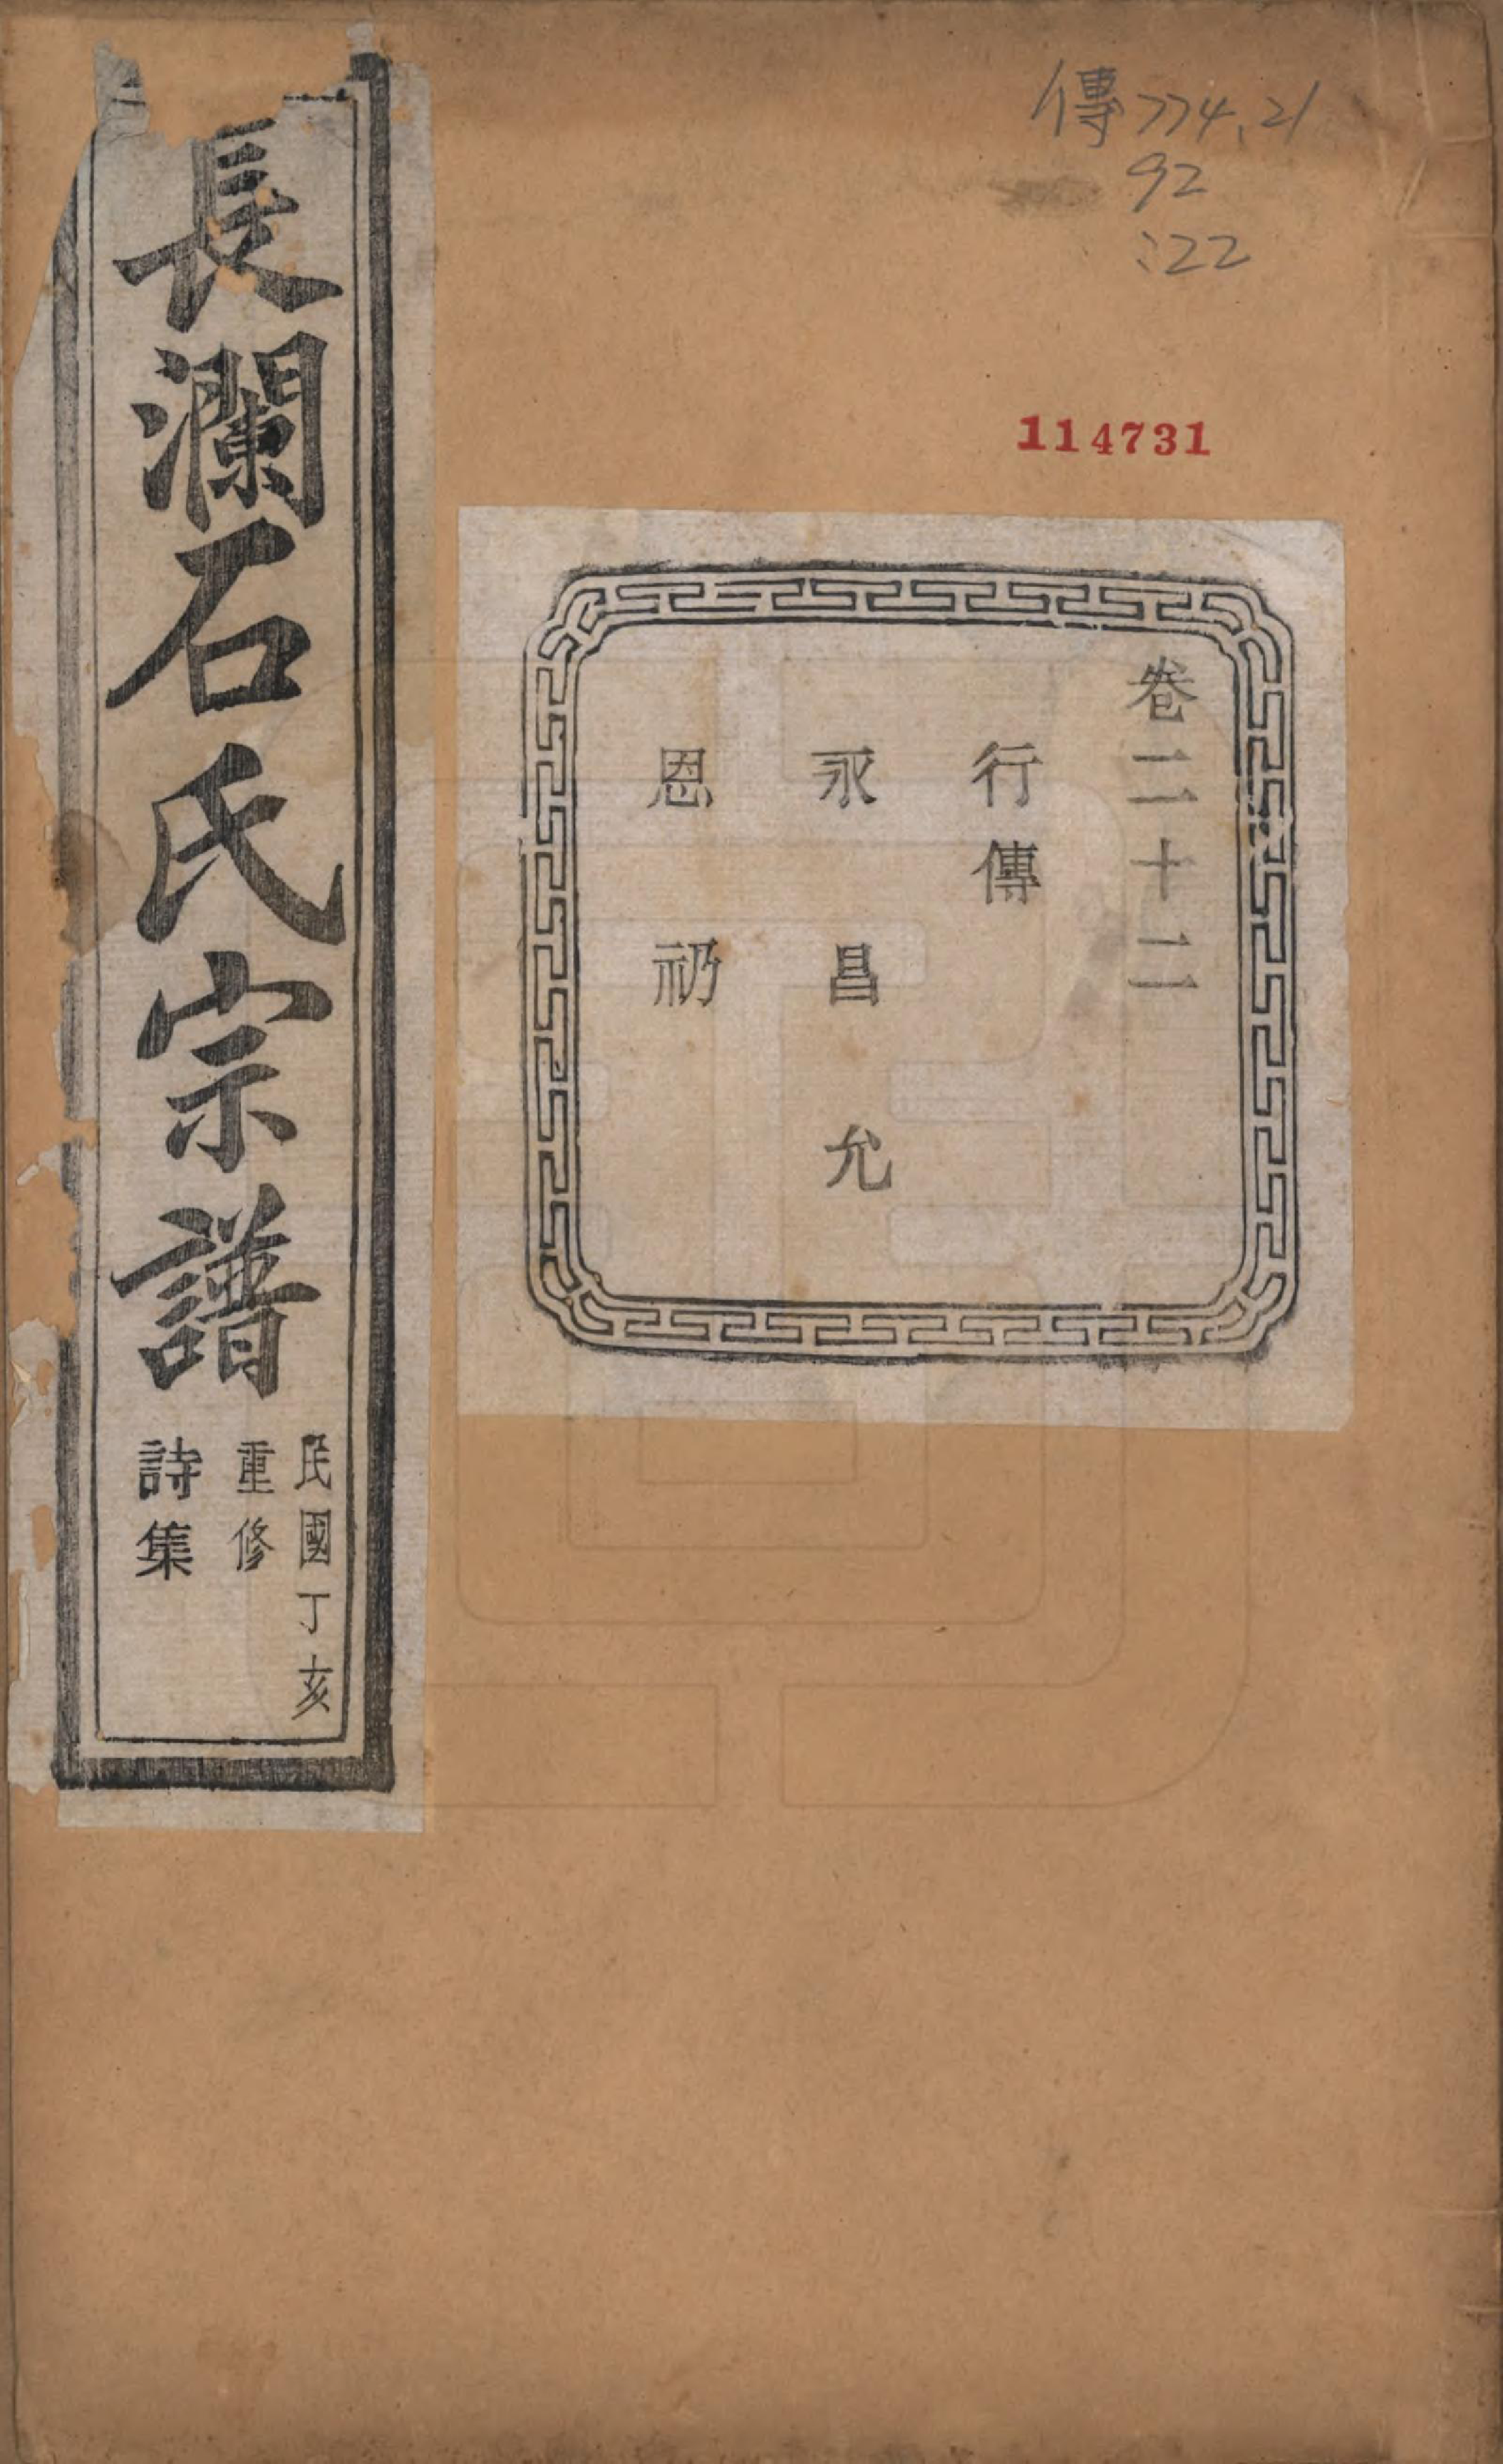 傳774.21
92
:22
114731
卷二十二
行傳
永昌允
恩礽
長瀾石氏宗譜
民國丁亥
重修
詩集